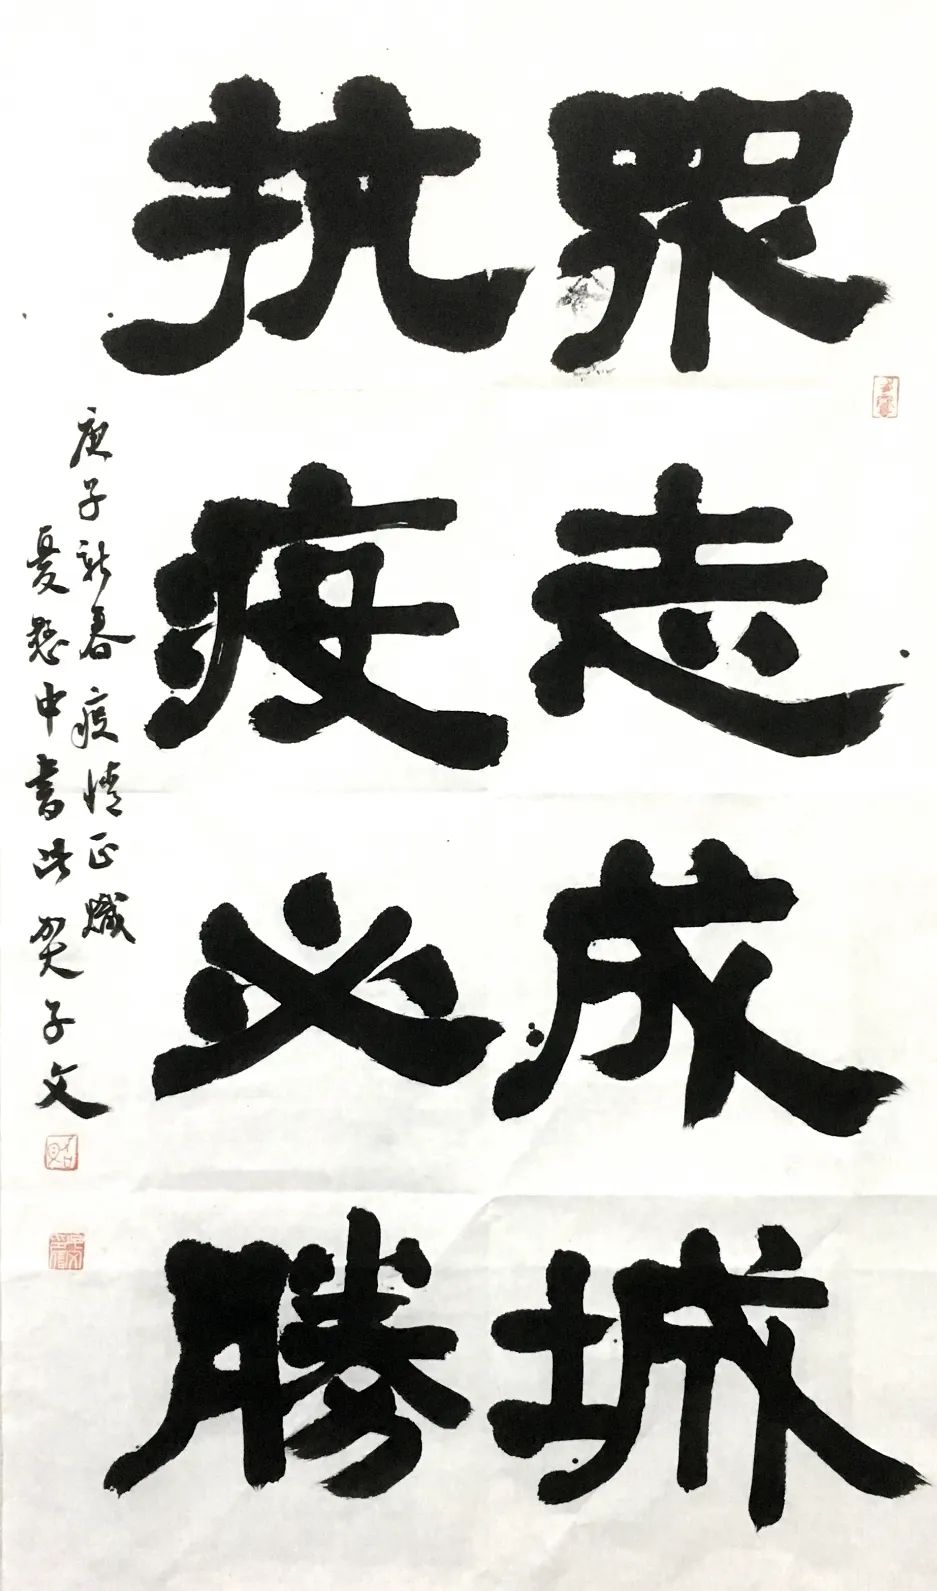 眾志成城
抗疫必勝
庚子新春疫情正熾
憂中書此子文